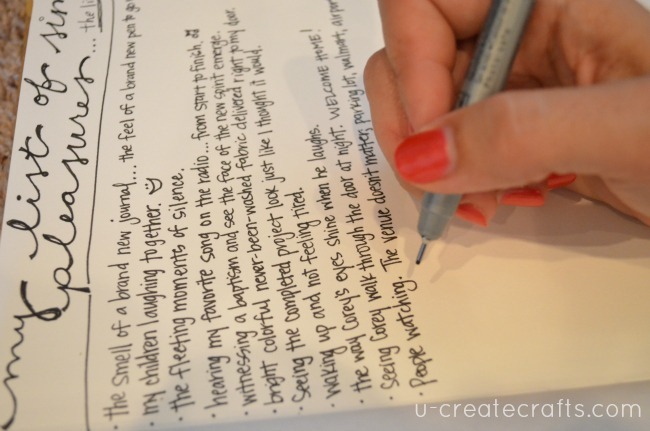 my list of sim
pleasures... the
• the smell of a brand new journal... the feel of a brand new pen to go
• my children laughing together.
• the fleeting moments of silence.
• hearing my favorite song on the radio... from start to finish.
• witnessing a baptism and see the face of the new spirit emerge.
• bright colorful never-been-washed fabric delivered right to my door.
• seeing the completed project look just like I thought it would.
• waking up and not feeling tired.
• the way Corey's eyes shine when he laughs.
• seeing Corey walk through the door at night. WELCOME HOME!
• People watching. The venue doesn't matter; parking lot, walmart, airport
u-createcrafts.com